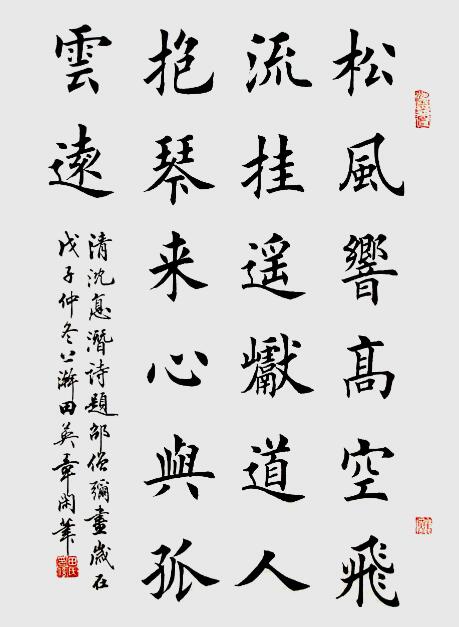 松風響髙空飛
流挂遥巘道人
抱琴来心與孤
雲遠
清沈惪潛詩題邵僧彌畫歲在
戊子仲冬上澣田英章閑筆